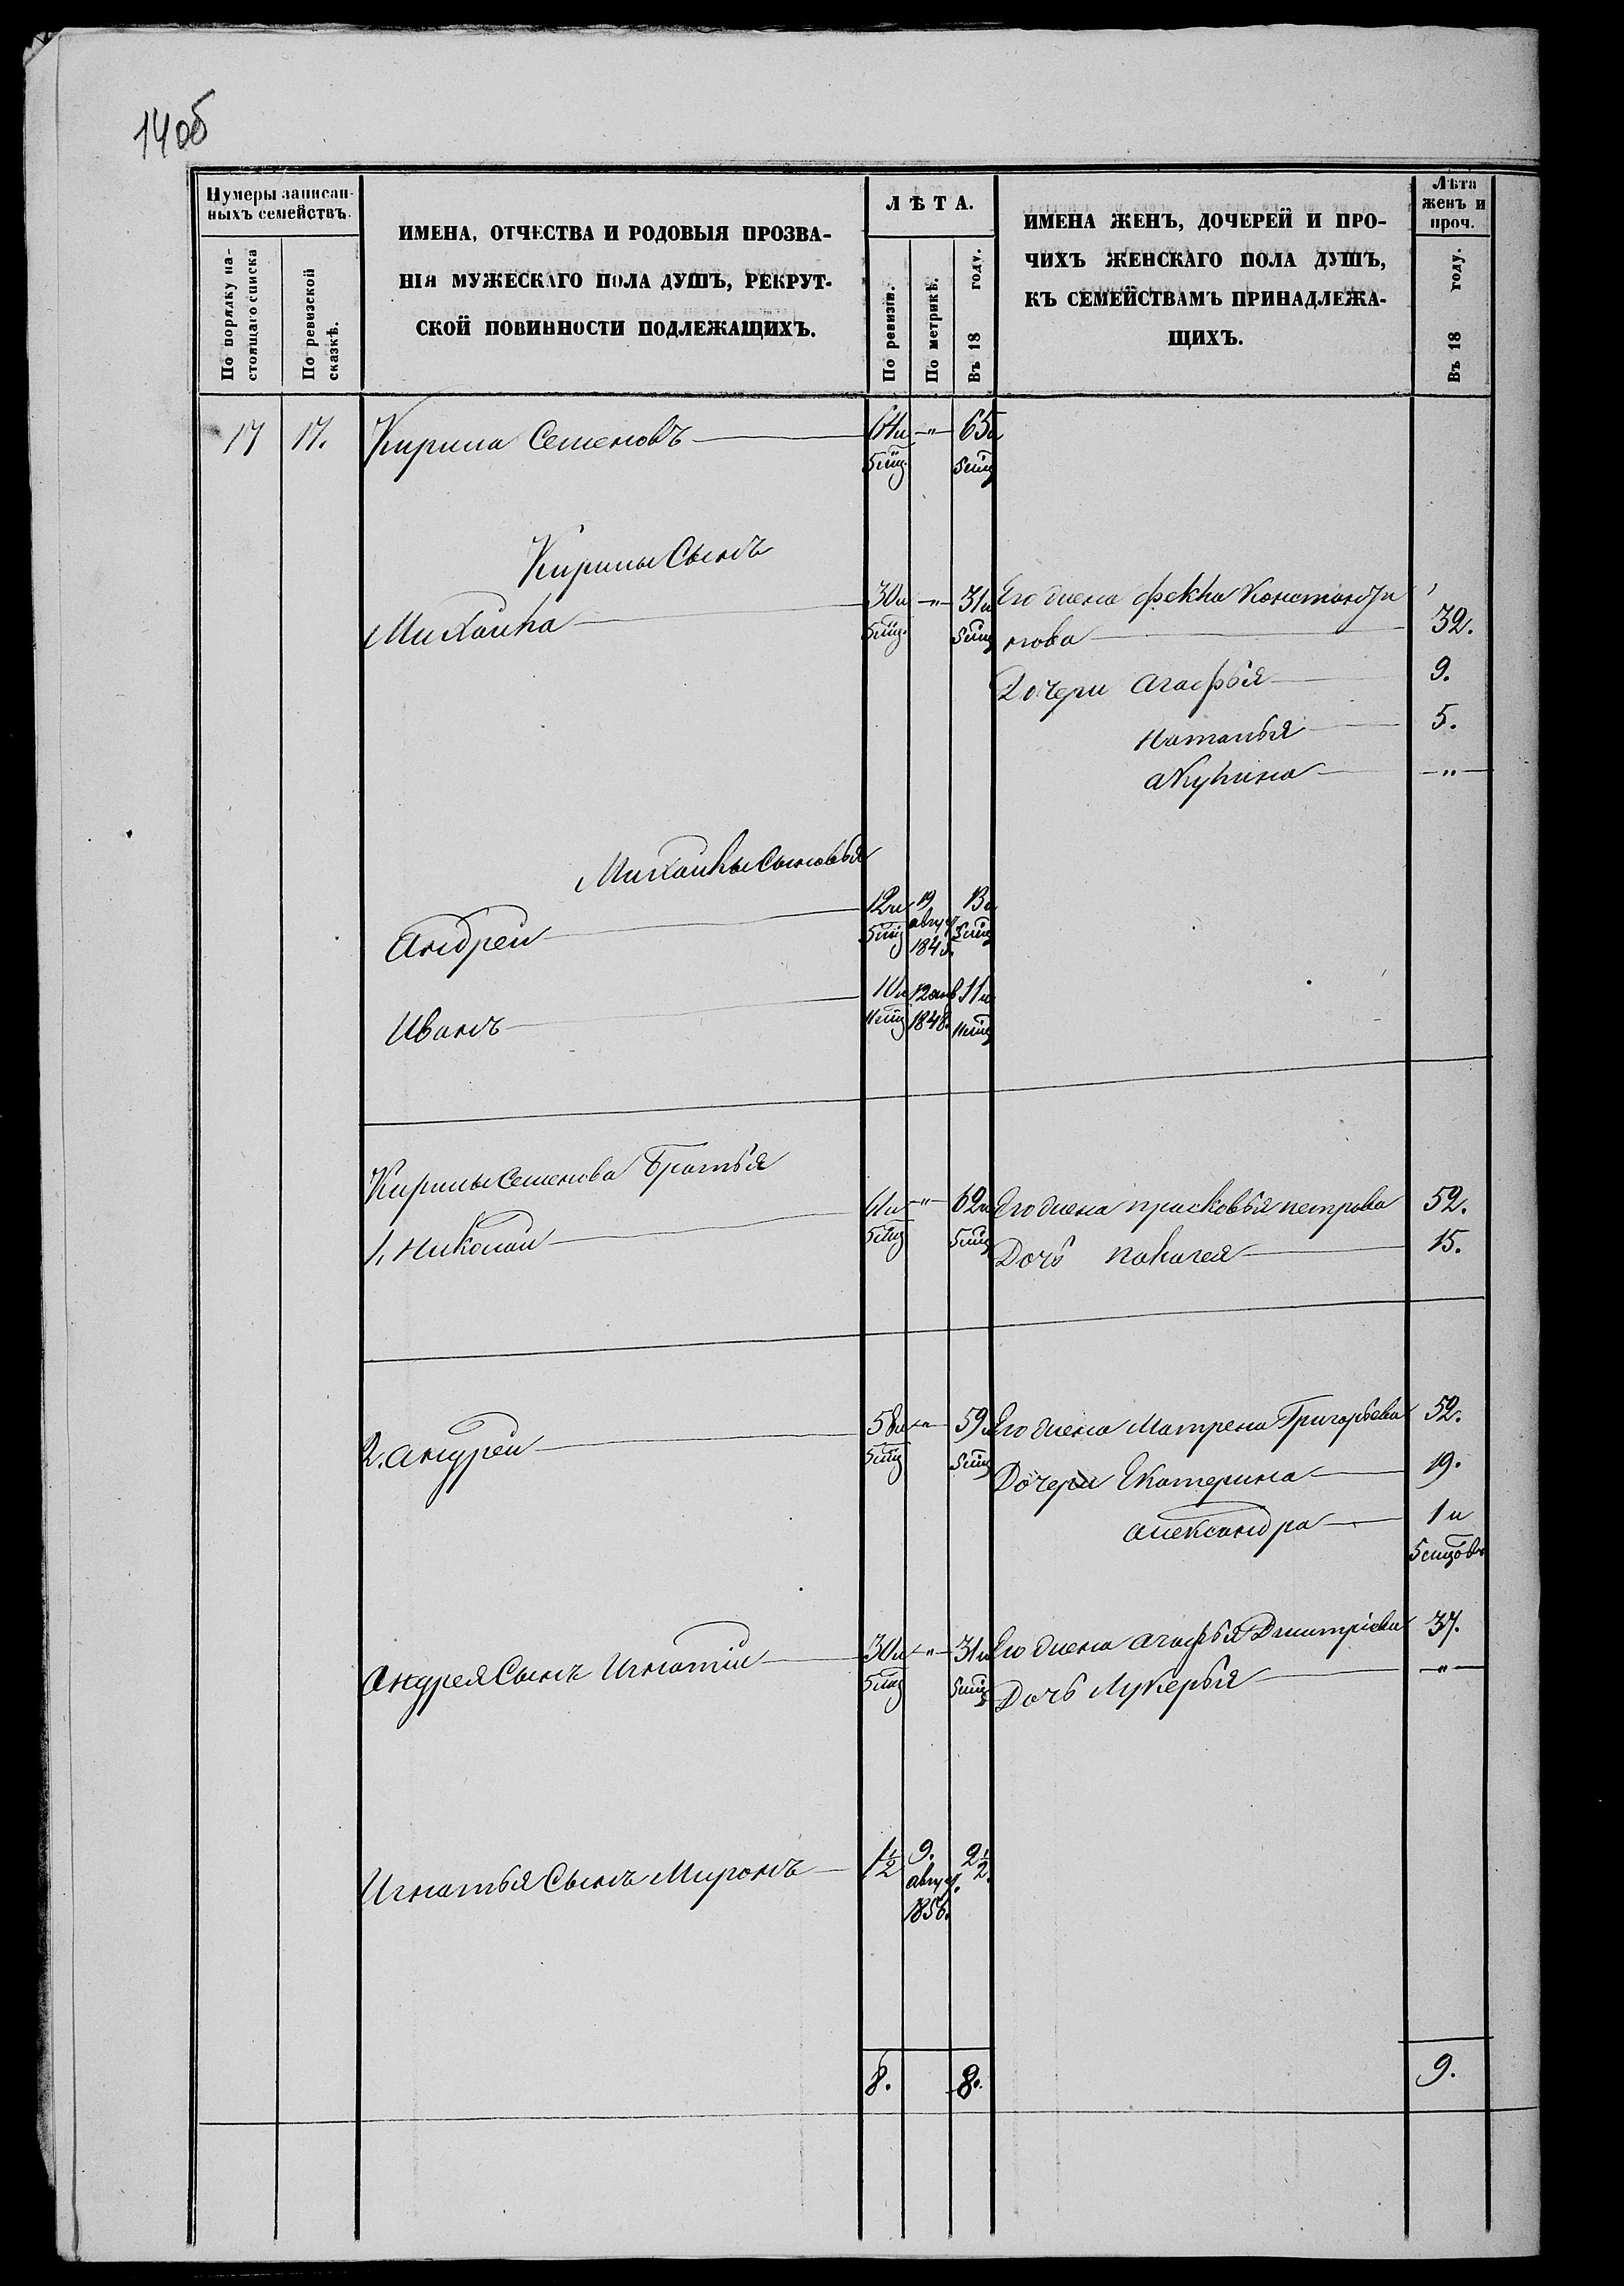 14об
Нумеры записан-
ныхъ семействъ.
По порядку на-
стоящаго списка
По ревизской
сказкѣ.
ИМЕНА, ОТЧЕСТВА И РОДОВЫЯ ПРОЗВА-
НІЯ МУЖЕСКАГО ПОЛА ДУШЪ, РЕКРУТ-
СКОЙ ПОВИННОСТИ ПОДЛЕЖАЩИХЪ.
ЛѢТА.
По ревизіи.
По метрикѣ.
Въ 18 году.
ИМЕНА ЖЕНЪ, ДОЧЕРЕЙ И ПРО-
ЧИХЪ ЖЕНСКАГО ПОЛА ДУШЪ,
КЪ СЕМЕЙСТВАМЪ ПРИНАДЛЕЖА-
ЩИХЪ.
Лѣта
женъ и
проч.
Въ 18 году.
17 17. Кирила Семеновъ 64и -"- 65и
5мцъ 5мцъ
Кирилы Сынъ
Михаила 30и -"- 31и Его жена Фекла Константи
5мцъ 5мцъ нова 32.
Дочери Агафья 9.
Наталья 5.
Акулина -"-
Михаилы Сыновья
Андрей 12и 19 13и
5мцъ авгус. 5мцъ
184
Иванъ 10и 12 янв 11и
11мцъ 1848. 11мцъ
Кирилы Семенова Братья
1, Николай 61и -"- 62и Его жена Прасковья Петрова 52.
5мцъ 5мцъ Дочь Палагея 15.
2. Андрей 58и -"- 59и Его жена Матрена Григорьева 52.
5мцъ 5мцъ Дочери Екатерина 19.
Александра 1и
5 мцовъ
Андрея Сынъ Игнатій 30и -"- 31и Его жена Агафья Дмитріева 37.
5мцъ 5мцъ Дочь Лукерья -"-
Игнатья Сынъ Миронъ 1½ 9. 2½.
авгус.
1856.
8. 8. 9.